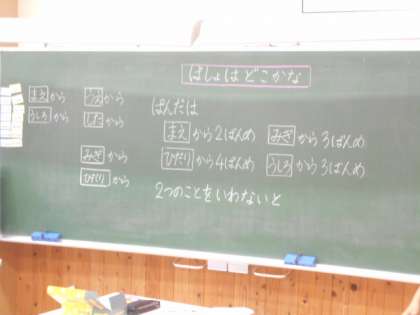 ばしょはどこかな
まえから
うしろから
うえから
したから
みぎから
ひだりから
ぱんだは
まえから2ばんめ みぎから3ばんめ
ひだりから4ばんめ うしろから3ばんめ
2つのことをいわないと